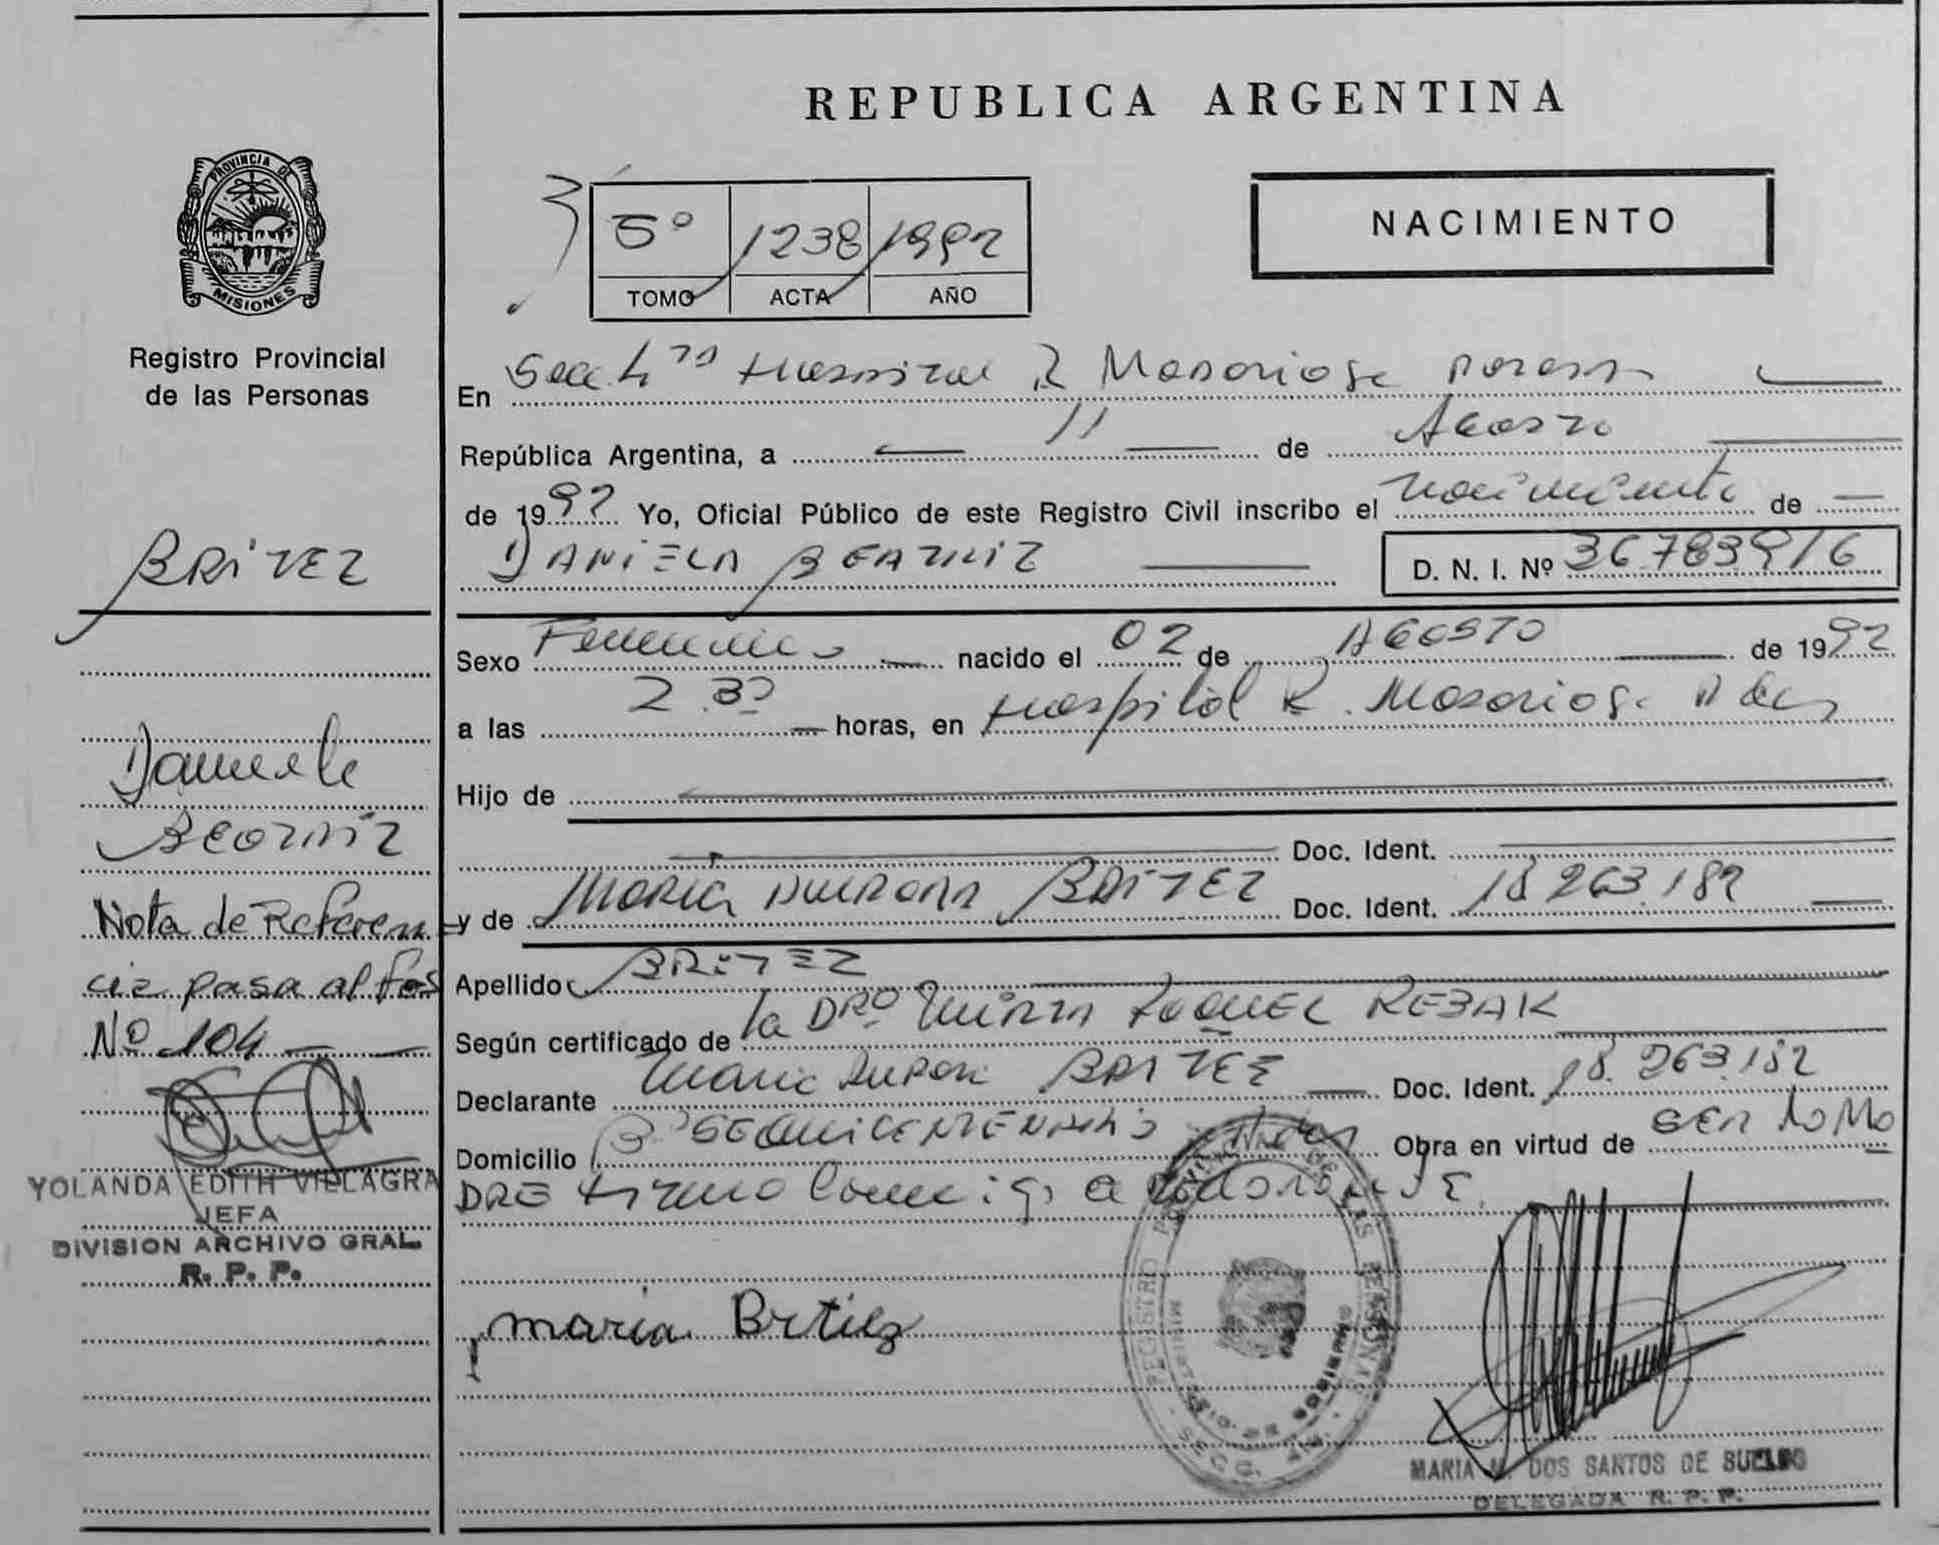 REPUBLICA ARGENTINA
PROVINCIA DE
MISIONES
Registro Provincial
de las Personas
5º 1238 1992
TOMO ACTA AÑO
NACIMIENTO
En Secc 4ta Hospital R Madariaga Posadas
República Argentina, a 11 de Agosto
de 1992 Yo, Oficial Público de este Registro Civil inscribo el nacimiento de
DANIELA BEATRIZ D. N. I. Nº 36783916
Sexo Femenino nacido el 02 de AGOSTO de 1992
a las 2.30 horas, en Hospital R. Madariaga
Hijo de
Doc. Ident.
y de MARIA BRITEZ Doc. Ident. 18 263.182
Apellido BRITEZ
Según certificado de la DRA RAQUEL REBAK
Declarante Maria BRITEZ Doc. Ident. 18.263.182
Domicilio Bº SEQUICENTENARIO Obra en virtud de SER LA MA
DRE firma conmigo
maria Britez
REGISTRO PROVINCIAL DE LAS PERSONAS
MINISTERIO DE GOBIERNO
MARIA DOS SANTOS DE
DELEGADA R. P. P.
BRITEZ
Daniela
BEATRIZ
Nota de Referen
cia pasa al fos
Nº 104
YOLANDA EDITH VILLAGRA
JEFA
DIVISION ARCHIVO GRAL.
R. P. P.